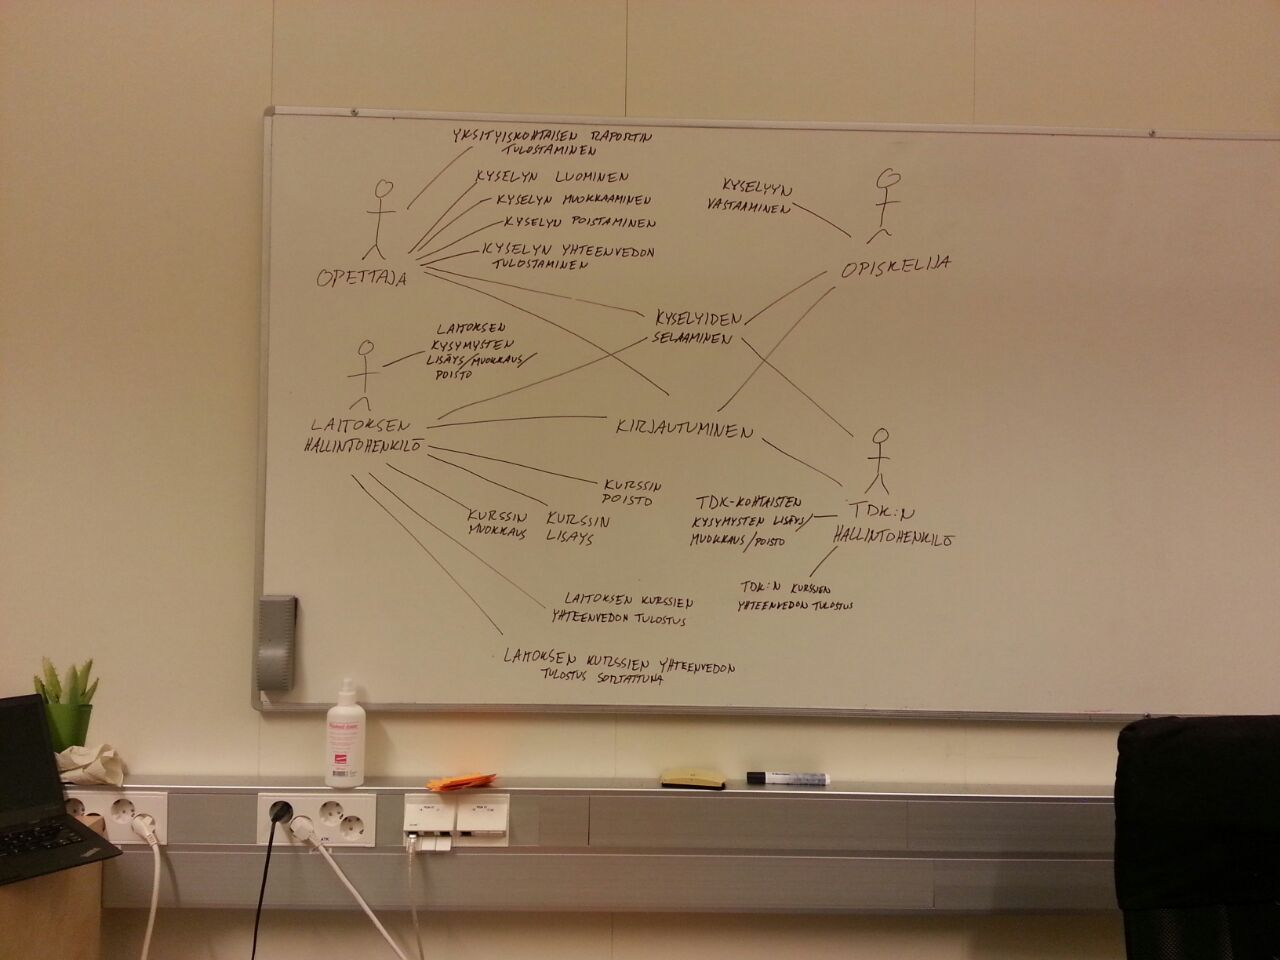 YKSITYISKOHTAISEN RAPORTIN
TULOSTAMINEN
KYSELYN LUOMINEN
KYSELYN MUOKKAAMINEN
KYSELYN POISTAMINEN
KYSELYN YHTEENVEDON
TULOSTAMINEN
OPETTAJA
KYSELYYN
VASTAAMINEN
OPISKELIJA
KYSELYIDEN
SELAAMINEN
LAITOKSEN
KYSYMYSTEN
LISÄYS/MUOKKAUS/
POISTO
LAITOKSEN
HALLINTOHENKILÖ
KIRJAUTUMINEN
KURSSIN
POISTO
KURSSIN
MUOKKAUS
KURSSIN
LISÄYS
TDK-KOHTAISTEN
KYSYMYSTEN LISÄYS/
MUOKKAUS/POISTO
TDK:N
HALLINTOHENKILÖ
TDK:N KURSSIEN
YHTEENVEDON TULOSTUS
LAITOKSEN KURSSIEN
YHTEENVEDON TULOSTUS
LAITOKSEN KURSSIEN YHTEENVEDON
TULOSTUS SORTATTUNA
ATK